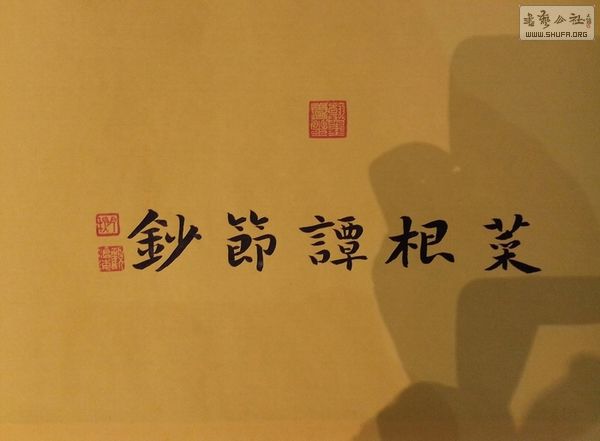 菜根譚節鈔
書藝公社
WWW.SHUFA.ORG